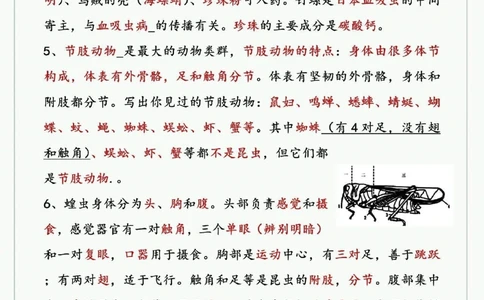 寄主，与血吸虫病 的传播有关。珍珠的主要成分是碳酸钙。
5、节肢动物 是最大的动物类群，节肢动物的特点：身体由很多体节
构成，体表有外骨骼，足和触角分节。体表有坚韧的外骨骼，身体和
附肢都分节。写出你见过的节肢动物：鼠妇、鸣蝉、蟋蟀、蜻蜓、蝴
蝶、蚊、蝇、蜘蛛、蜈蚣、虾、蟹等。其中蜘蛛（有 4 对足，没有翅
和触角）、蜈蚣、虾、蟹等都不是昆虫，但它们都
是节肢动物.。
一 二 三
6、蝗虫身体分为头、胸和腹。头部负责感觉和摄
食，感觉器官有一对触角，三个单眼（辨别明暗）
和一对复眼，口器用于摄食。胸部是运动中心，有三对足，善于跳跃
；有两对翅，适于飞行。触角和足等是昆虫的附肢，分节。腹部集中